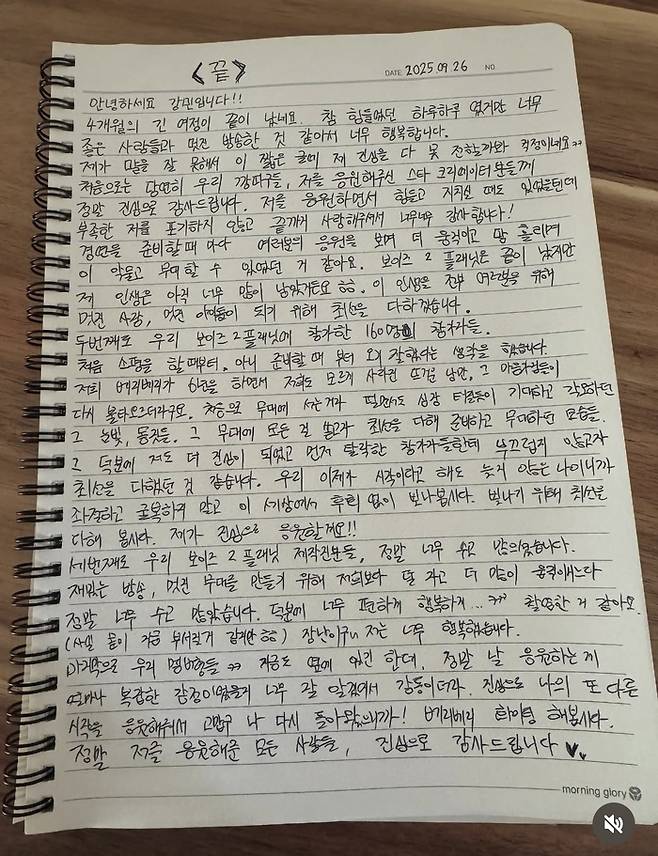 <끝>
DATE 2025.09.26 NO
안녕하세요 강민입니다!!
4개월의 긴 여정이 끝이 났네요. 참 힘들었던 하루하루 였지만 너무
좋은 사람들과 멋진 방송한 것 같아서 너무 행복합니다.
제가 말을 잘 못해서 이 짧은 글에 제 진심을 다 못 전할까봐 걱정이네요ㅠㅠ
처음으로는 당연히 우리 깡파구들, 저를 응원해주신 스타 크리에이터분들께
정말 진심으로 감사드립니다. 저를 응원하면서 힘들고 지치실 때도 있었을텐데
부족한 저를 포기하지 않고 끝까지 사랑해주셔서 너무너무 감사합니다!
경연을 준비할 때 마다 여러분의 응원을 보며 더 움직이고 땀 흘리며
이 악물고 무대할 수 있었던 거 같아요. 보이즈 2 플래닛은 끝이 났지만
저 인생은 아직 너무 많이 남았거든요 ㅎㅎ. 이 인생을 전부 여러분을 위해
멋진 사람, 멋진 아이돌이 되기 위해 최선을 다하겠습니다.
두번째로 우리 보이즈 2 플래닛에 참가한 160명의 참가자들.
처음 쇼핑을 할 때부터. 아니 준비할 때 부터 오길 잘했다는 생각을 했습니다.
저희 베리베리가 6년을 하면서 저희도 모르게 사라진 뜨거운 낭만, 그 마음가짐들이
다시 불타오르더라구요. 처음으로 무대에 서는거라 떨면서도 심장 터질듯이 기대하고 각오하던
그 눈빛, 몸짓들. 그 무대에 모든 걸 쏟고자 최선을 다해 준비하고 무대하던 모습들.
그 덕분에 저도 더 진심이 되었고 먼저 탈락한 참가자들한테 부끄럽지 않고자
최선을 다했던 것 같습니다. 우리 이제가 시작이라고 해도 늦지 않은 나이니까
좌절하고 굴복하지 말고 이 세상에서 후회 없이 빛나봅시다. 빛나기 위해 최선을
다해 봅시다. 제가 진심으로 응원할게요!!
세번째로 우리 보이즈 2 플래닛 제작진분들, 정말 너무 수고 많으셨습니다.
재밌는 방송, 멋진 무대를 만들기 위해 저희보다 덜 자고 더 많이 움직이느라
정말 너무 수고 많았습니다. 덕분에 너무 편하게 행복하게... ㅋㅋ 촬영한 거 같아요.
(사실 몸이 가끔 부서질거 같지만 ㅎㅎ) 장난이구 저는 너무 행복했습니다.
마지막으로 우리 멤버형들 ㅠㅠ 지금도 옆에 있긴 한데, 정말 날 응원하는게
얼마나 복잡한 감정이었을지 너무 잘 알겠어서 감동이더라. 진심으로 나의 또 다른
시작을 응원해줘서 고맙구 나 다시 돌아왔으니까! 베리베리 화이팅 해봅시다.
정말 저를 응원해준 모든 사람들, 진심으로 감사드립니다 ♥♥
morning glory